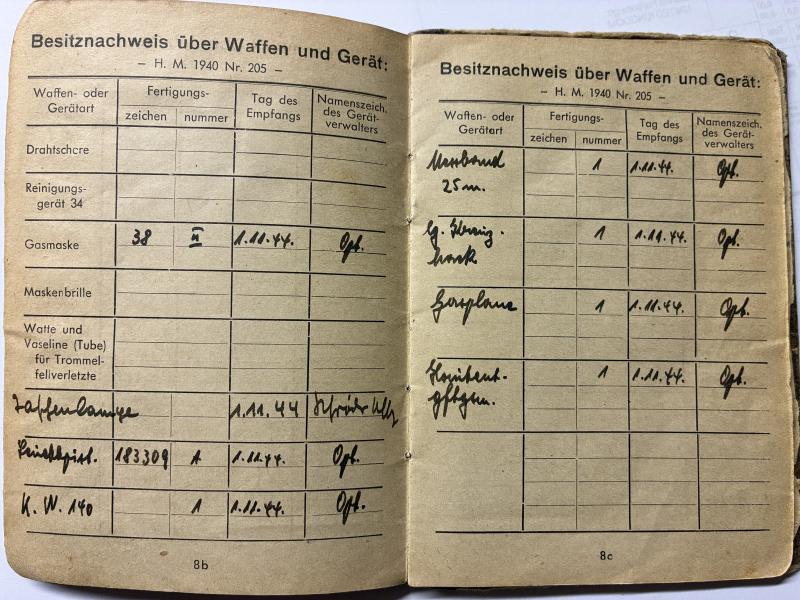 Besitznachweis über Waffen und Gerät:
– H. M. 1940 Nr. 205 –
Waffen- oder Gerätart Fertigungs- zeichen nummer Tag des Empfangs Namenszeich. des Gerät- verwalters
Drahtschere
Reinigungs-
gerät 34
Gasmaske 38 II 1.11.44. Opt.
Maskenbrille
Watte und
Vaseline (Tube)
für Trommel-
fellverletzte
Taschenlampe 1.11.44
Leuchtpist. 183309 1 1.11.44. Opt.
K. W. 140 1 1.11.44. Opt.
8b
Besitznachweis über Waffen und Gerät:
– H. M. 1940 Nr. 205 –
Waffen- oder Gerätart Fertigungs- zeichen nummer Tag des Empfangs Namenszeich. des Gerät- verwalters
Messband 1 1.11.44. Opt.
25 m.
1 1.11.44. Opt.
Gasplane 1 1.11.44. Opt.
1 1.11.44. Opt.
8c